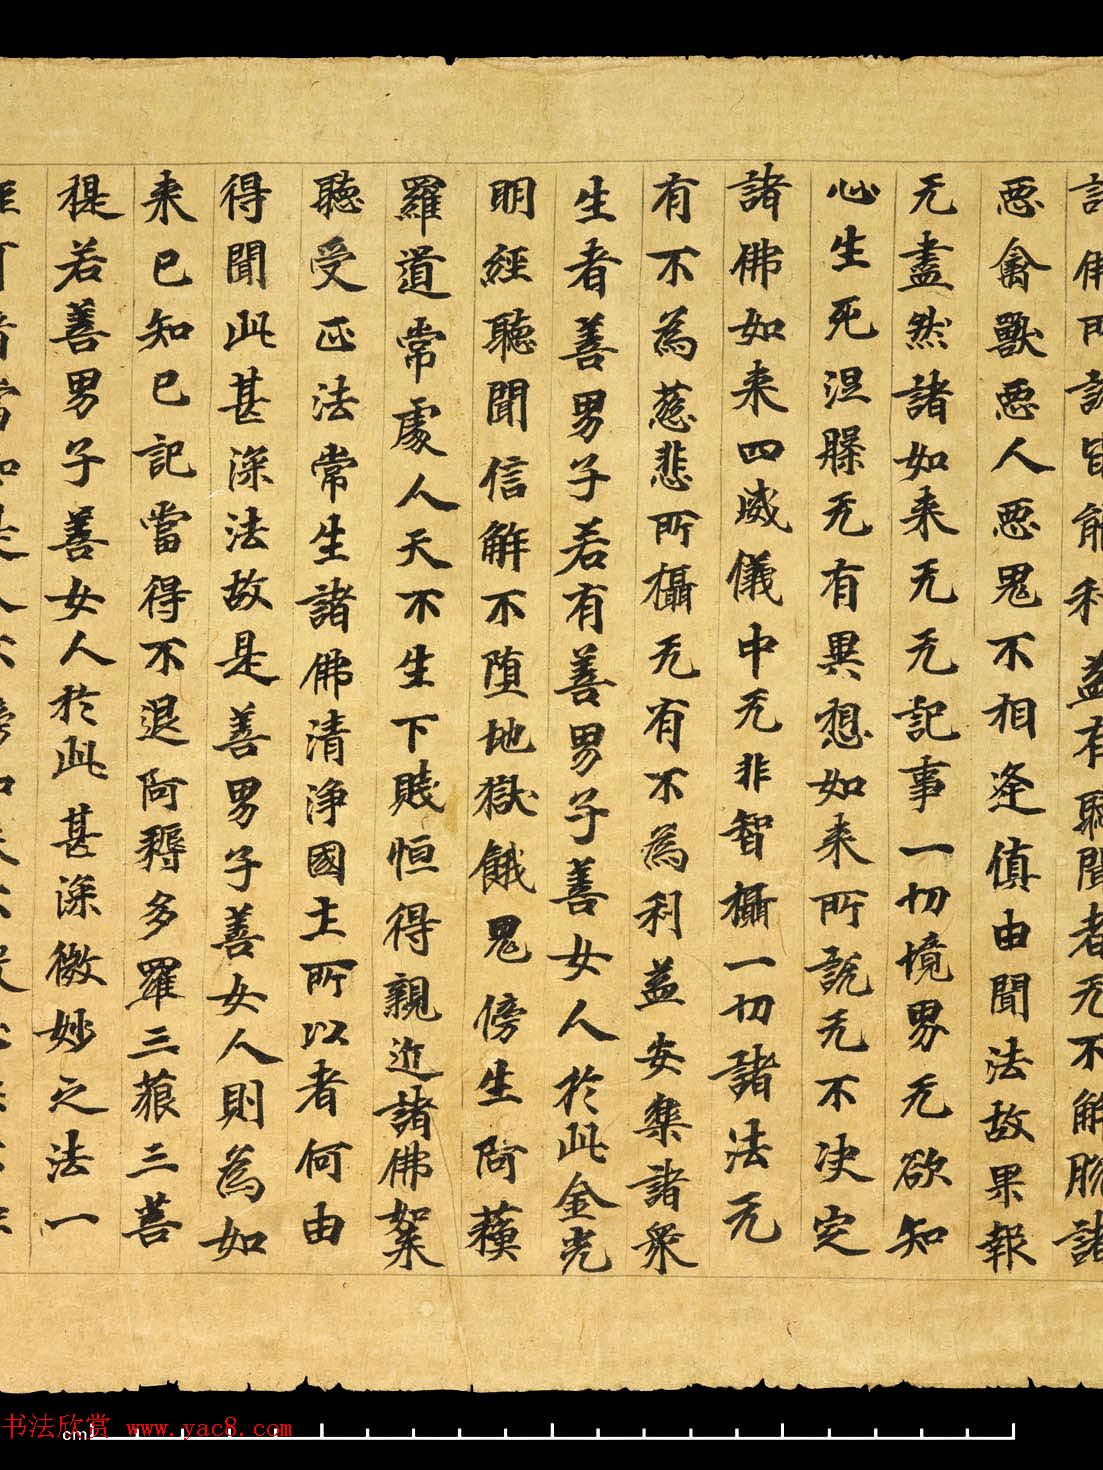 諸佛所說皆能利益有聽聞者无不解脫諸
惡禽獸惡人惡鬼不相逢值由聞法故果報
无盡然諸如来无无記事一切境界无欲知
心生死涅槃无有異想如来所說无不决定
諸佛如来四威儀中无非智攝一切諸法无
有不為慈悲所攝无有不為利益安樂諸衆
生者善男子若有善男子善女人於此金光
明經聽聞信解不墮地獄餓鬼傍生阿蘇
羅道常處人天不生下賤恒得親近諸佛如来
聽受正法常生諸佛清淨國土所以者何由
得聞此甚深法故是善男子善女人則為如
来已知已記當得不退阿耨多羅三藐三菩
提若善男子善女人於此甚深微妙之法一
书法欣赏 www.yac8.com
cm